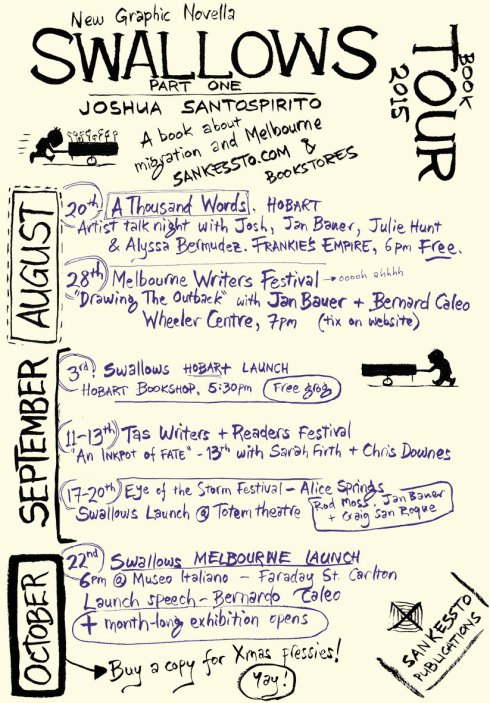 New Graphic Novella
SWALLOWS
PART ONE
JOSHUA SANTOSPIRITO
BOOK
TOUR
2015
A book about
migration and Melbourne
SANKESSTO.COM &
BOOKSTORES
AUGUST
20th A Thousand Words. HOBART
Artist talk night with Josh, Jan Bauer, Julie Hunt
& Alyssa Bermudez. FRANKIE'S EMPIRE, 6pm Free.
28th Melbourne Writers Festival → ooooh ahhhh
"Drawing The Outback" with Jan Bauer + Bernard Caleo
Wheeler Centre, 7pm (tix on website)
SEPTEMBER
3rd! Swallows HOBART LAUNCH
HOBART BOOKSHOP, 5:30pm Free grog
11-13th Tas Writers + Readers Festival
"An INKPOT of FATE" - 13th with Sarah Firth + Chris Downes
17-20th Eye of the Storm Festival - Alice Springs
Swallows Launch @ Totem theatre
Rod Moss, Jan Bauer
+ Craig San Roque
OCTOBER
22nd Swallows MELBOURNE LAUNCH
6pm @ Museo Italiano - Faraday St. Carlton
Launch speech - Bernardo Caleo
+ month-long exhibition opens
Buy a copy for Xmas pressies!
Yay!
SANKESSTO
PUBLICATIONS